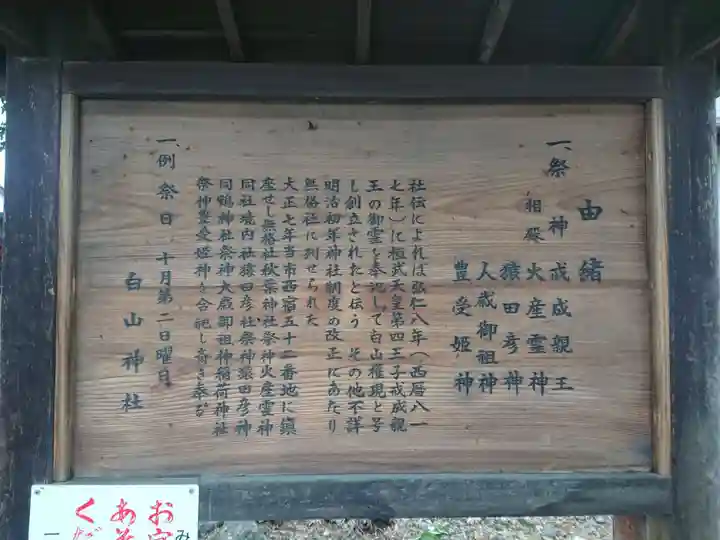 由緒
一、祭神 戒成親王
相殿 火産霊神
猿田彦神
大歳御祖神
豊受姫神
社伝によれば弘仁八年(西暦八一
七年)に桓武天皇第四王子戒成親
王の御霊を奉祀して白山権現と号
し創立されたと伝う その他不詳
明治初年神社制度の改正にあたり
無格社に列せられた
大正七年当市西宿五十二番地に鎮
座せし無格社秋葉神社祭神火産霊神
同社境内社猿田彦社祭神猿田彦神
同鴨神社祭神大歳御祖神稲荷神社
祭神豊受姫神を合祀し斎き奉る
一、例祭日 十月第二日曜日
白山神社
お宮
あそ
くだ